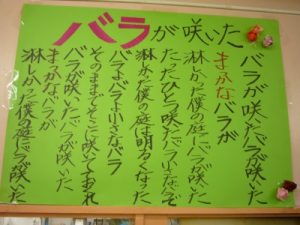 バラが咲いた
バラが咲いたバラが咲いた
まっかなバラが
淋しかった僕の庭にバラが咲いた
たったひとつ咲いたバラ小さなバラで
淋しかった僕の庭は明るくなった
バラよバラよ小さなバラ
そのままでそこに咲いておくれ
バラが咲いたバラが咲いた
まっかなバラが
淋しかった僕の庭にバラが咲いた